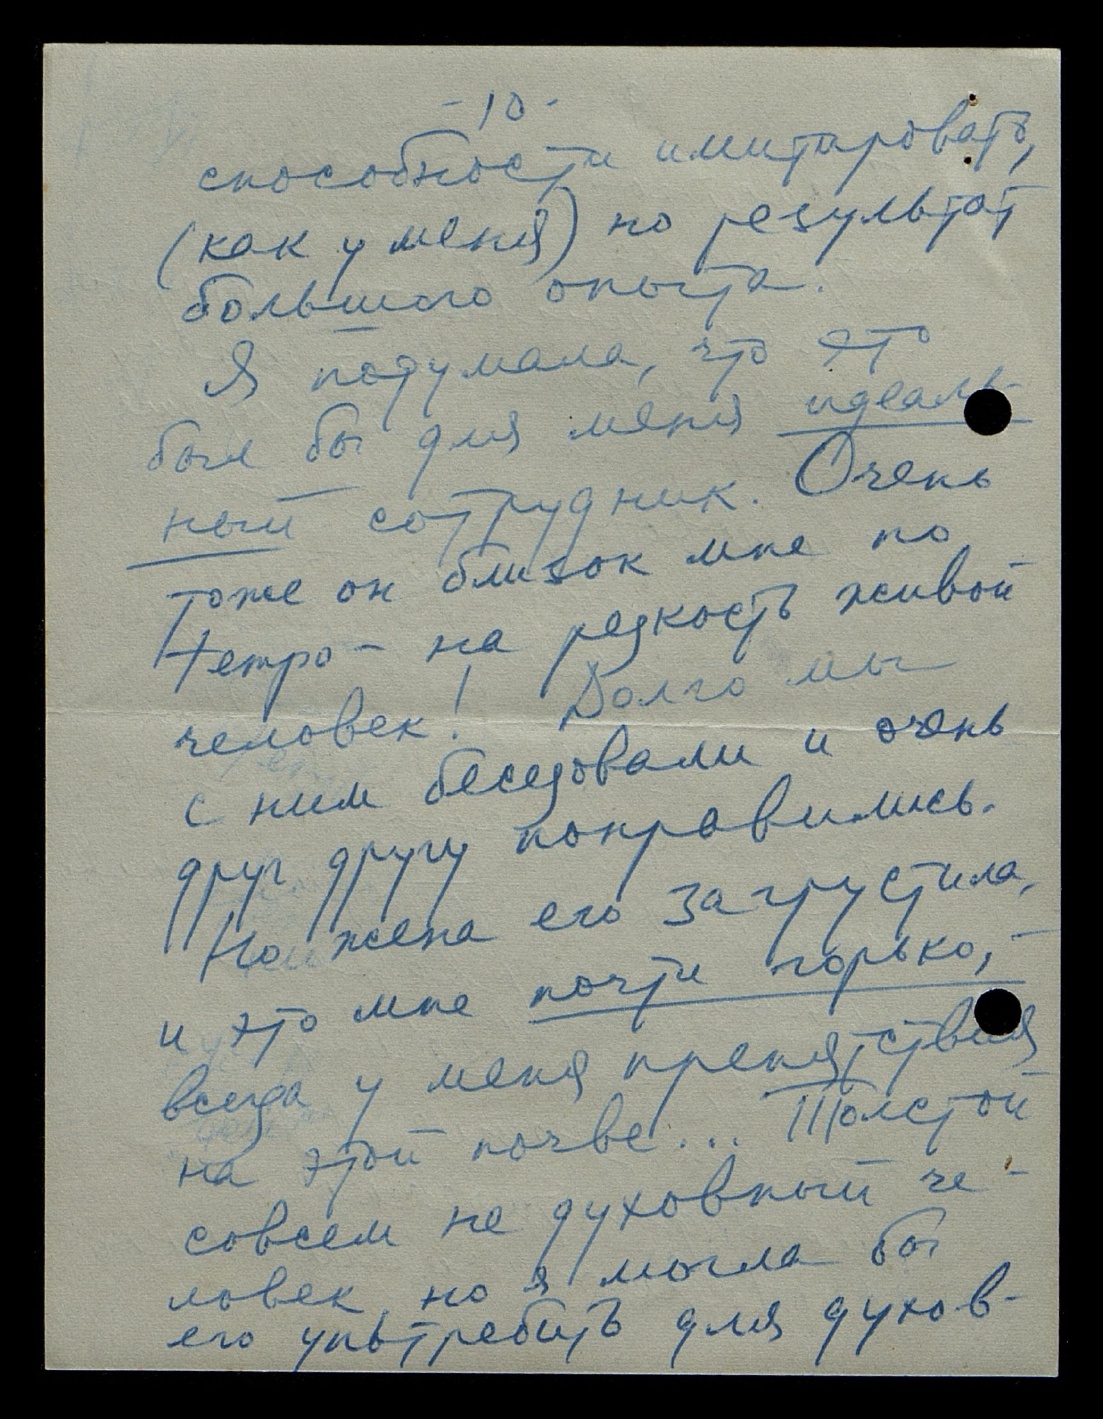 -10-
способности имитировать,
(как у меня) но результат
большого опыта.
Я подумала, что это
был бы для меня идеаль-
ный сотрудник. Очень
тоже он близок мне по
темпро- на редкость живой
человек! Долго мы
с ним беседовали и очень
друг другу понравились.
Но жена его загрустила,
и это мне почти горько, -
всегда у меня препятствия
на этой почве... Толстой
совсем не духовный че-
ловек, но я могла бы
его употребить для духов-